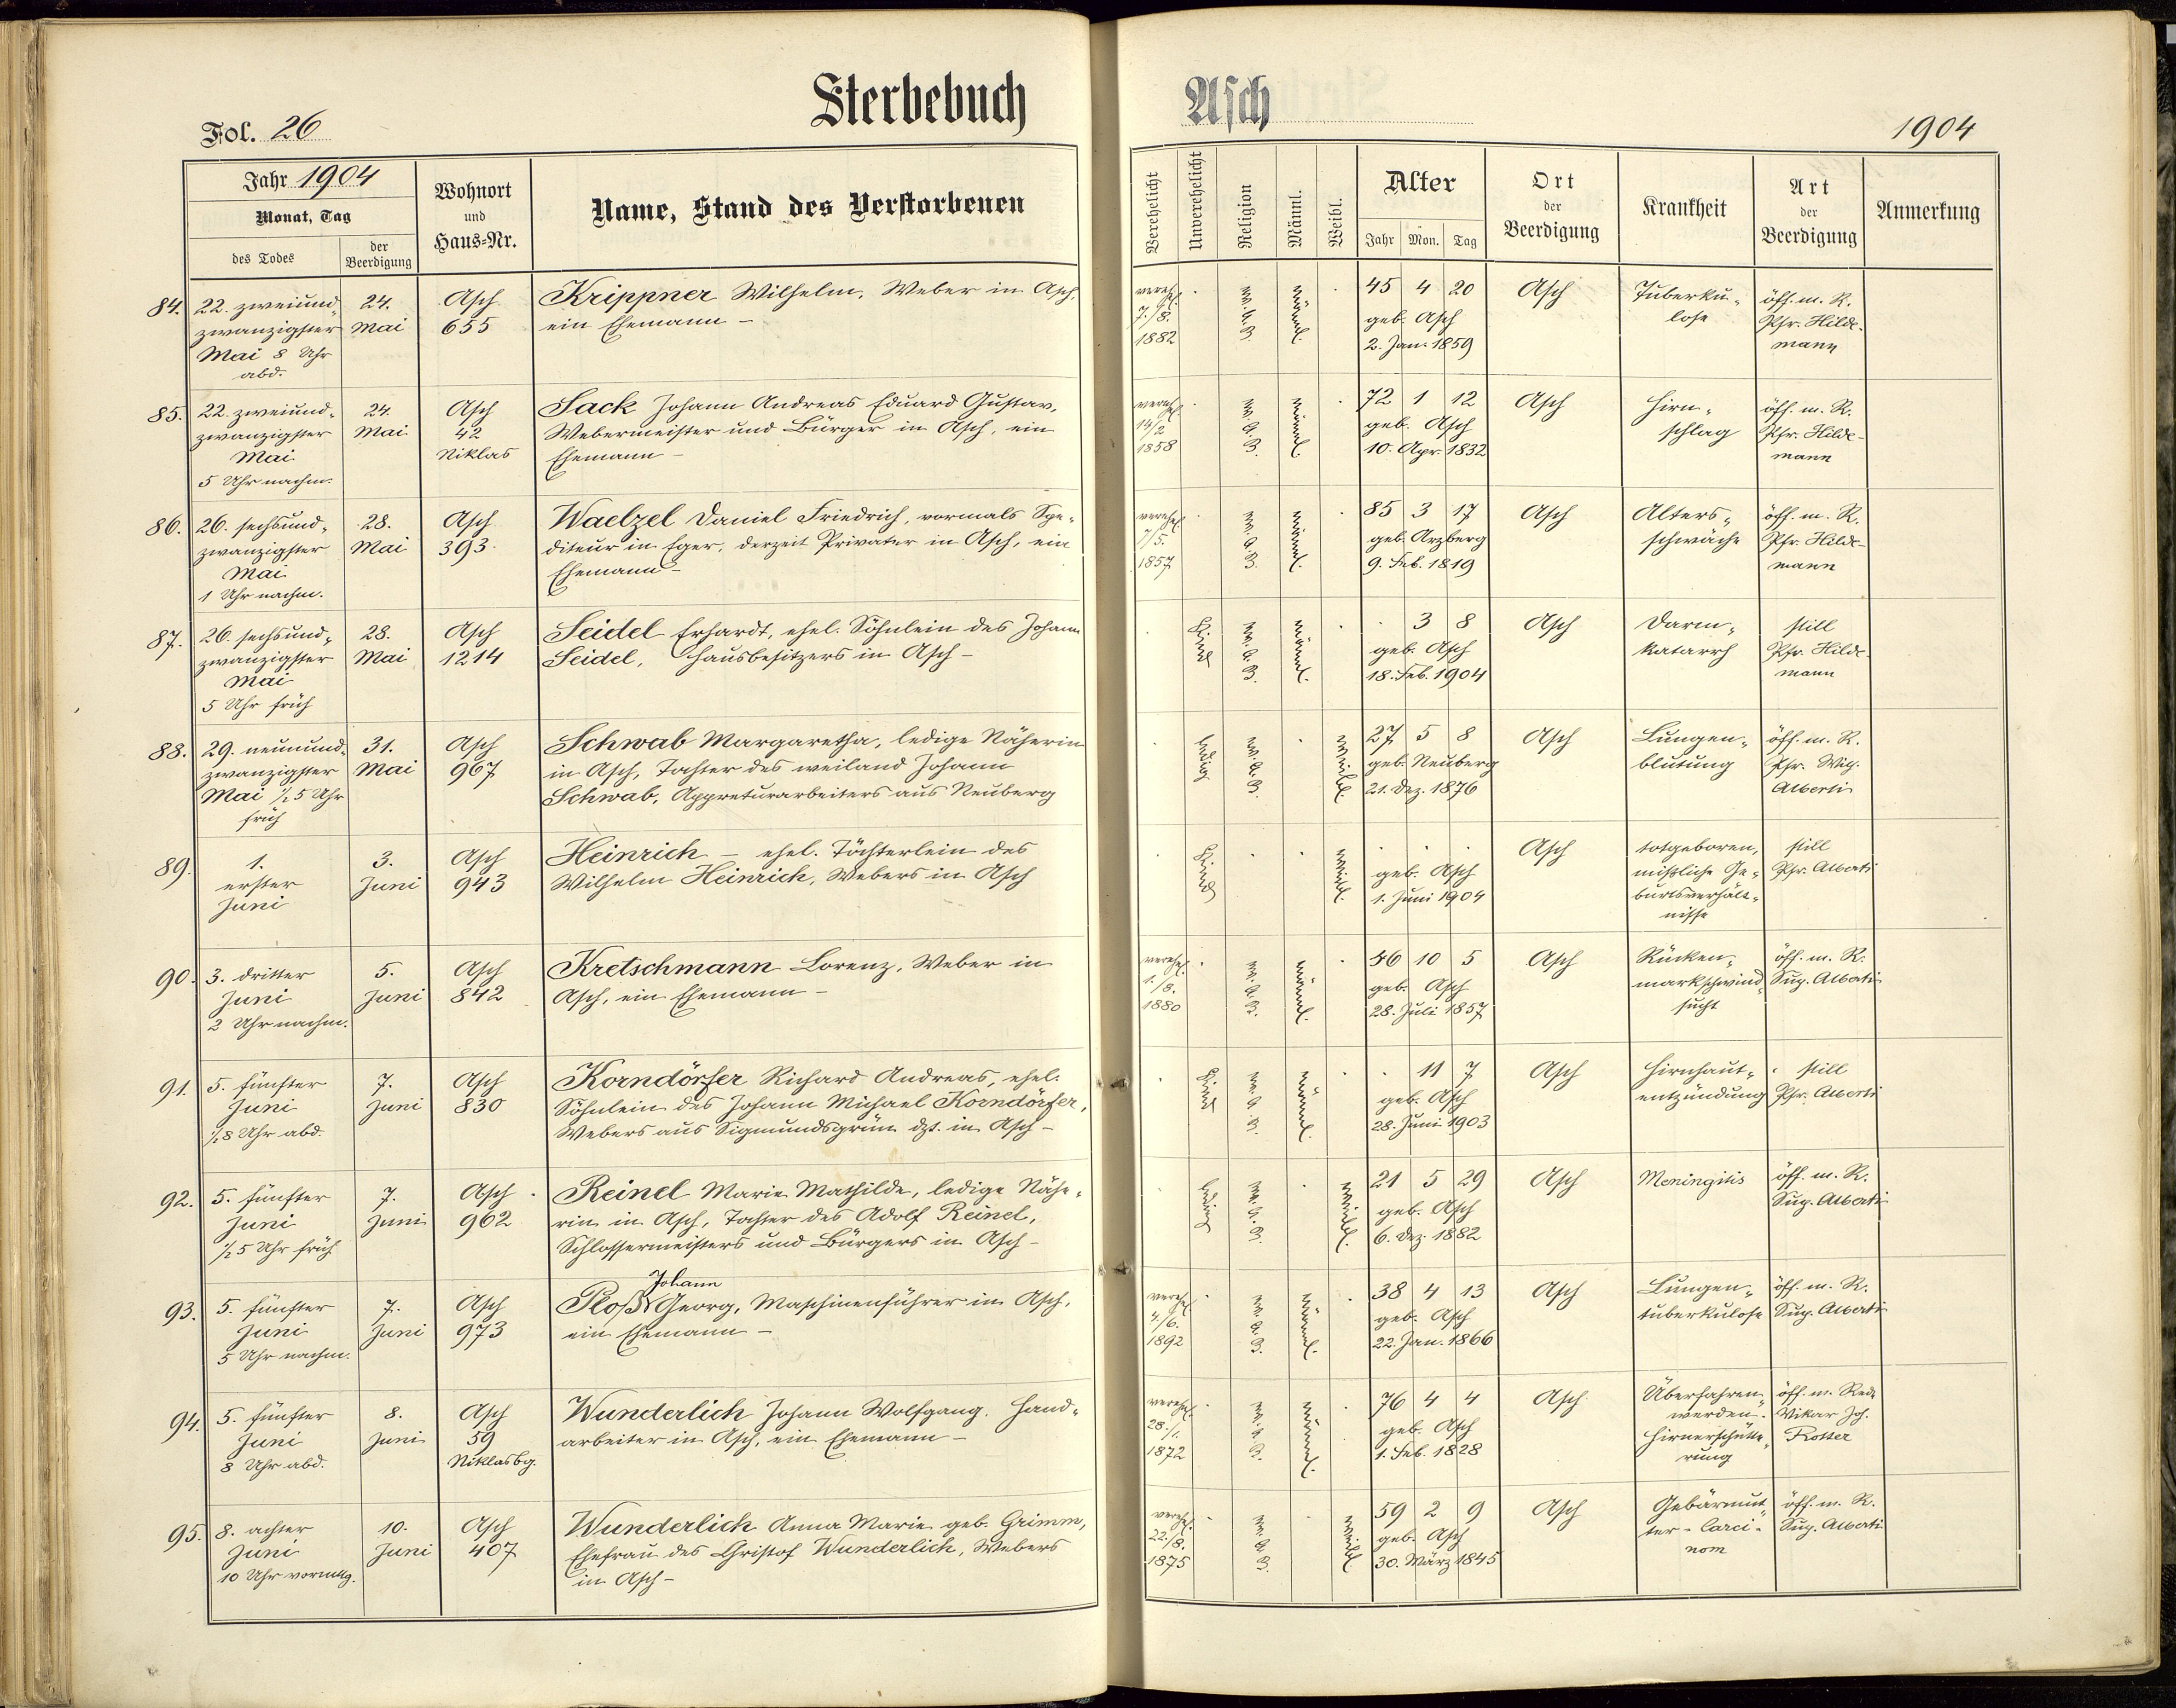 Sterbebuch Asch
Fol. 26
1904
Jahr 1904
Monat, Tag
des Todes
der Beerdigung
Wohnort
und
Haus=Nr.
Name, Stand des Verstorbenen
Verehelicht
Unverehelicht
Religion
Männl.
Weibl.
Alter
Jahr Mon. Tag
Ort
der
Beerdigung
Krankheit
Art
der
Beerdigung
Anmerkung
84. 22. zweiund-
zwanzigster
Mai 8 Uhr
abd.
24.
Mai
Asch
655
Krippner Wilhelm, Weber in Asch,
ein Ehemann –
vereh.
7./8.
1882
männl.
45 4 20
geb. Asch
2. Jan. 1859
Asch
Tuberku-
lose
öff. m. R.
Pfr. Hilde-
mann
85. 22. zweiund-
zwanzigster
Mai
5 Uhr nachm.
24.
Mai
Asch
42
Niklas
Sack Johann Andreas Eduard Gustav,
Webermeister und Bürger in Asch, ein
Ehemann –
verehl.
14/2
1858
männl.
72 1 12
geb. Asch
10. Apr. 1832
Asch
Hirn-
schlag
öff. m. R.
Pfr. Hilde-
mann
86. 26. sechsund-
zwanzigster
Mai
1 Uhr nachm.
28.
Mai
Asch
393.
Waelzel Daniel Friedrich, vormals Spe-
diteur in Eger, derzeit Privater in Asch, ein
Ehemann –
verehel.
7/5.
1857
männl.
85 3 17
geb. Arzberg
9. Feb. 1819
Asch
Alters-
schwäche
öff. m. R.
Pfr. Hilde-
mann
87. 26. sechsund-
zwanzigster
Mai
5 Uhr früh
28.
Mai
Asch
1214
Seidel Erhardt, ehel. Söhnlein des Johann
Seidel, Hausbesitzers in Asch –
Kind
männl.
3 8
geb. Asch
18. Feb. 1904
Asch
Darm-
katarrh
still
Pfr. Hilde-
mann
88. 29. neunund-
zwanzigster
Mai ½5 Uhr
früh
31.
Mai
Asch
967
Schwab Margaretha, ledige Näherin
in Asch, Tochter des weiland Johann
Schwab, Appreturarbeiters aus Neuberg
ledig
weibl.
27 5 8
geb. Neuberg
21. Dez. 1876
Asch
Lungen-
blutung
öff. m. R.
Pfr.
Alberti
89. 1.
erster
Juni
3.
Juni
Asch
943
Heinrich – ehel. Töchterlein des
Wilhelm Heinrich, Webers in Asch
Kind
weibl.
geb. Asch
1. Juni 1904
Asch
totgeboren,
mißliche Ge-
burtsverhält-
nisse
still
Pfr. Alberti
90. 3. dritter
Juni
2 Uhr nachm.
5.
Juni
Asch
842
Kretschmann Lorenz, Weber in
Asch, ein Ehemann –
verehel.
1./8.
1880
männl.
46 10 5
geb. Asch
28. Juli 1857
Asch
Rücken-
markschwind-
sucht
öff. m. R.
Sup. Alberti
91. 5. fünfter
Juni
½8 Uhr abd.
7.
Juni
Asch
830
Korndörfer Richard Andreas, ehel.
Söhnlein des Johann Michael Korndörfer,
Webers aus Sigmundsgrün dzt. in Asch –
Kind
männl.
11 7
geb. Asch
28. Juni 1903
Asch
Hirnhaut-
entzündung
still
Pfr. Alberti
92. 5. fünfter
Juni
½5 Uhr früh
7.
Juni
Asch
962
Reinel Marie Mathilde, ledige Nähe-
rin in Asch, Tochter des Adolf Reinel,
Schlossermeisters und Bürgers in Asch –
ledig
weibl.
21 5 29
geb. Asch
6. Dez. 1882
Asch
Meningitis
öff. m. R.
Sup. Alberti
93. 5. fünfter
Juni
5 Uhr nachm.
7.
Juni
Asch
973
Johann
Ploß Georg, Maschinenführer in Asch,
ein Ehemann –
verehl.
4./6.
1892
männl.
38 4 13
geb. Asch
22. Jan. 1866
Asch
Lungen-
tuberkulose
öff. m. R.
Sup. Alberti
94. 5. fünfter
Juni
8 Uhr abd.
8.
Juni
Asch
59
Niklasbg.
Wunderlich Johann Wolfgang, Hand-
arbeiter in Asch, ein Ehemann –
verehel.
28./1.
1872
männl.
76 4 4
geb. Asch
1. Feb. 1828
Asch
Überfahren-
werden.
Hirnerschütte-
rung
öff. m. Rede
Vikar Joh.
Rotter
95. 8. achter
Juni
10 Uhr vormttg.
10.
Juni
Asch
407
Wunderlich Anna Marie geb. Grimm,
Ehefrau des Christof Wunderlich, Webers
in Asch –
verehel.
22./8.
1875
weibl.
59 2 9
geb. Asch
30. März 1845
Asch
Gebärmut-
ter-Carci-
nom
öff. m. R.
Sup. Alberti